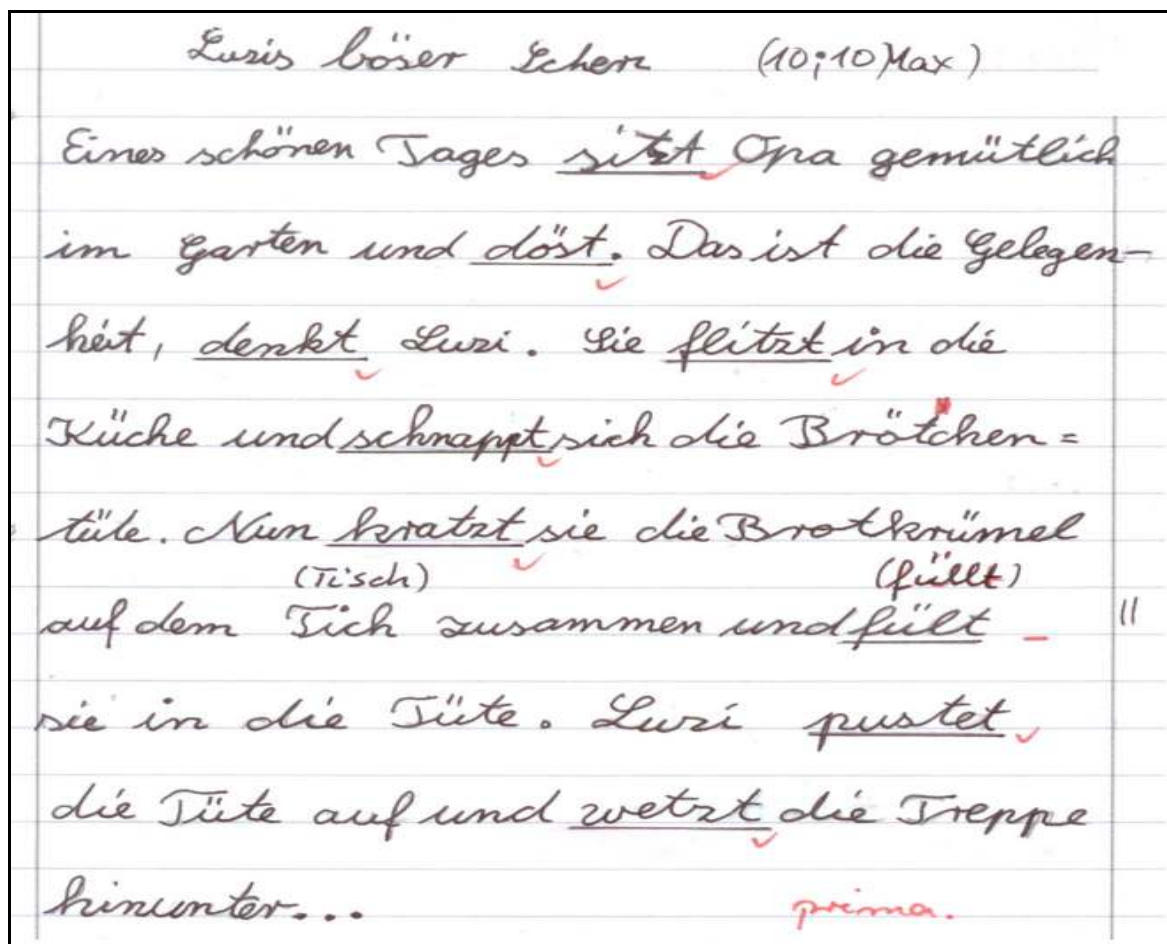 Luzis böser Scherz (10;10 Max)
Eines schönen Tages sitzt Opa gemütlich
im Garten und döst. Das ist die Gelegen-
heit, denkt Luzi. Sie flitzt in die
Küche und schnappt sich die Brötchen=
tüte. Nun kratzt sie die Brotkrümel
(Tisch) (füllt)
auf dem Tich zusammen und fült – ||
sie in die Tüte. Luzi pustet
die Tüte auf und wetzt die Treppe
hinunter...
prima.